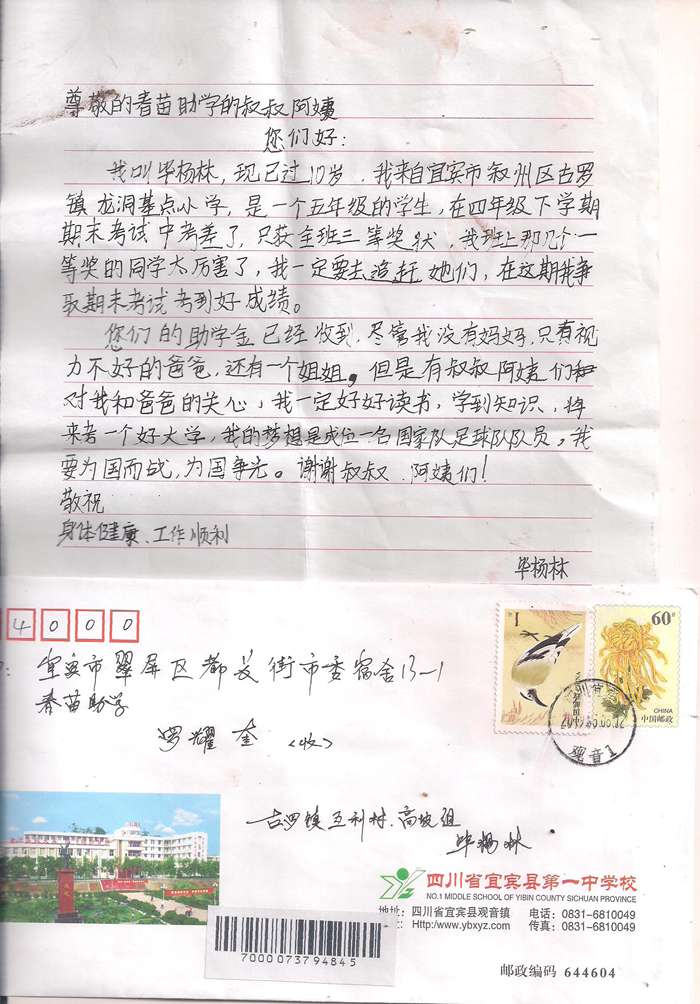 尊敬的春苗助学的叔叔阿姨
您们好：
我叫毕杨林，现已过10岁，我来自宜宾市叙州区古罗
镇龙洞基点小学，是一个五年级的学生，在四年级下学期
期末考试中考差了，只获全班三等奖状，我班上那几个一
等奖的同学太厉害了，我一定要去追赶她们，在这期我争
取期末考试考到好成绩。
您们的助学金已经收到，尽管我没有妈妈，只有视
力不好的爸爸，还有一个姐姐，但是有叔叔阿姨们
对我和爸爸的关心，我一定好好读书，学到知识，将
来考一个好大学，我的梦想是成位一名国家队足球队队员，我
要为国而战，为国争光。谢谢叔叔、阿姨们！
敬祝
身体健康、工作顺利
毕杨林
4000
宜宾市翠屏区都长街市委宿舍13-1
春苗助学
罗耀奎（收）
1
60分
CHINA
中国邮政
古罗镇互利村高坡组
毕杨林
四川省宜宾县第一中学校
NO.1 MIDDLE SCHOOL OF YIBIN COUNTY SICHUAN PROVINCE
地址：四川省宜宾县观音镇 电话：0831-6810049
: Http://www.ybxyz.com 传真：0831-6810049
7000073794845
邮政编码 644604